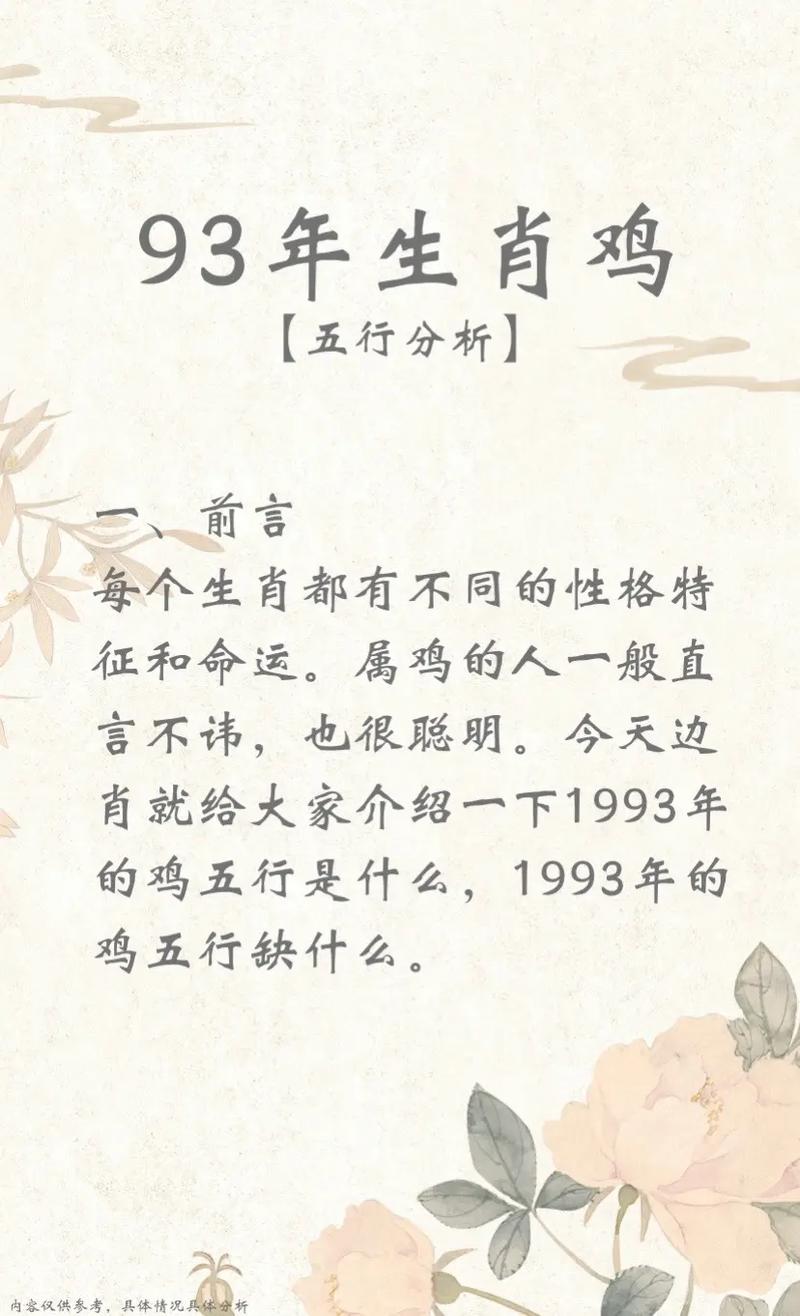 93年生肖鸡
【五行分析】
一、前言
每个生肖都有不同的性格特
征和命运。属鸡的人一般直
言不讳，也很聪明。今天边
肖就给大家介绍一下1993年
的鸡五行是什么，1993年的
鸡五行缺什么。
内容仅供参考，具体情况具体分析